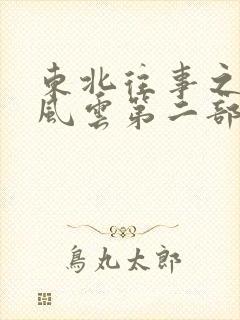 東北往事之
風雲第二部
鳥丸太郎